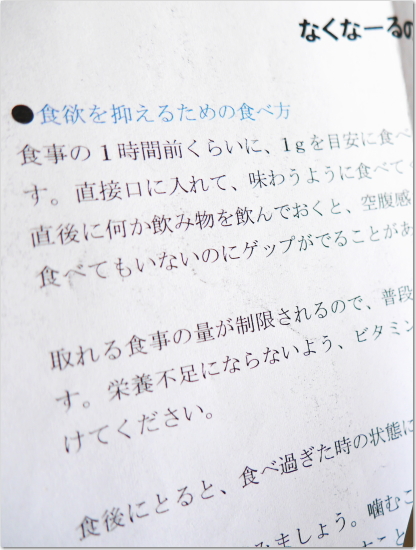 なくなーるの
●食欲を抑えるための食べ方
食事の1時間前くらいに、1gを目安に食べ
す。直接口に入れて、味わうように食べて
直後に何か飲み物を飲んでおくと、空腹感
食べてもいないのにゲップがでることがあ
取れる食事の量が制限されるので、普段
す。栄養不足にならないよう、ビタミン
けてください。
食後にとると、食べ過ぎた時の状態に
みましょう。噛むこ
こと